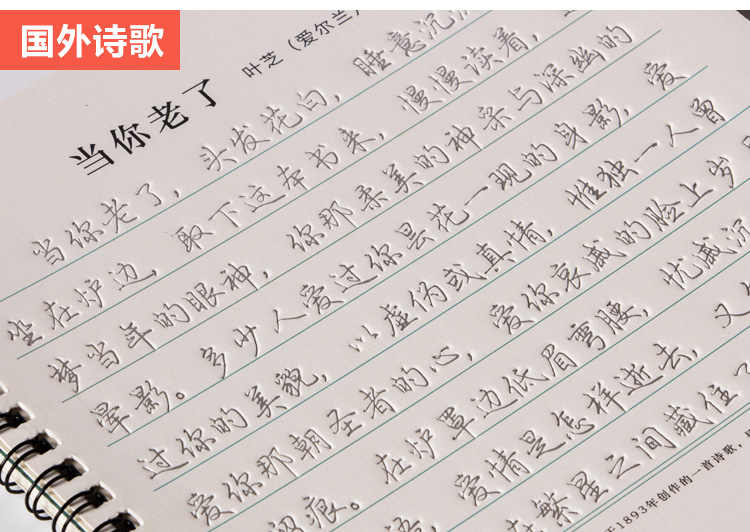 国外诗歌
当你老了 叶芝（爱尔兰）
当你老了，头发花白，睡意沉沉
坐在炉边，取下这本书来，慢慢读着，
梦当年的眼神，你那柔美的神采与深幽的
晕影。多少人爱过你昙花一现的身影，爱
过你的美貌，以虚伪或真情，惟独一人曾
爱你那朝圣者的心，爱你哀戚的脸上岁
留痕。在炉罩边低眉弯腰，忧戚沉
语，爱情是怎样逝去，又
繁星之间藏住了
1893年创作的一首诗歌，